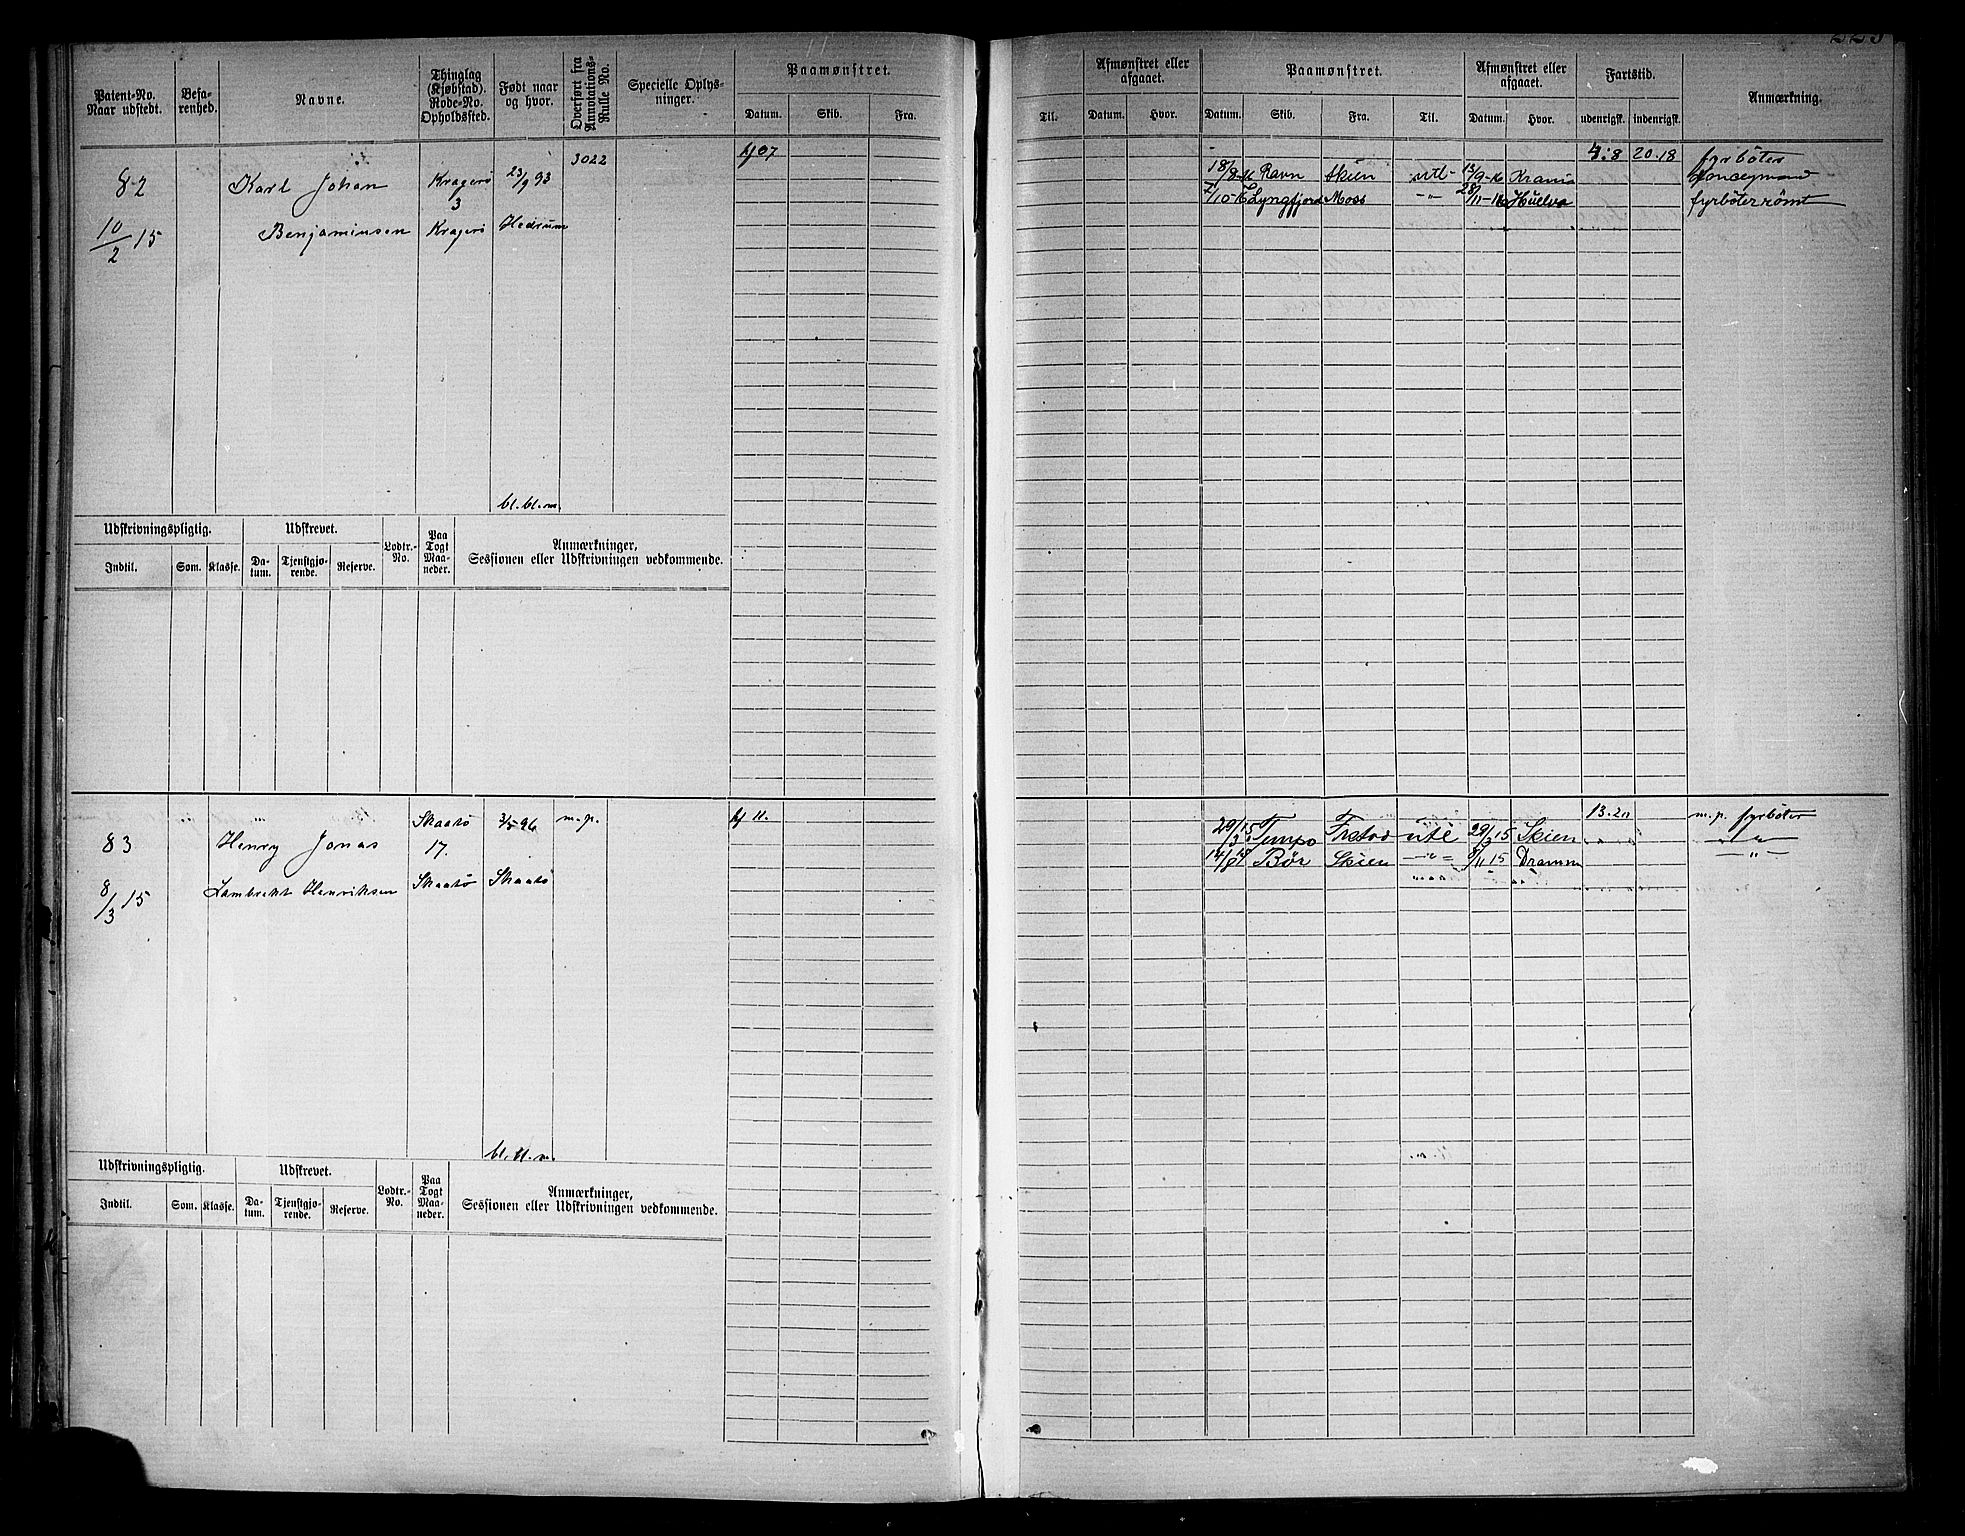 Patent-No. Naar udstedt.
Befarenhed.
Navne.
Thinglag (Kjøbstad). Rode-No. Opholdssted.
Født naar og hvor.
Overført fra Annotations-Rulle No.
Specielle Oplysninger.
Paamønstret.
Datum. Skib. Fra.
82
Karl Johan
Kragerø
23/9 93
3022
hj 07
3
10/2 15
Benjaminsen
Kragerø
Hedrum
bl. bl. m.
Udskrivningspligtig. Udskrevet. Lodtr.-No. Paa Togt Maaneder. Anmærkninger, Sessionen eller Udskrivningen vedkommende.
Indtil. Som. Klasse. Datum. Tjenstgjørende. Reserve.
83
Henry Jonas
Skaatø
3/5 96
m.p.
hj 11.
17.
8/3 15
Lambrekt Henriksen
Skaatø
Skaatø
bl. bl. m.
Udskrivningspligtig. Udskrevet. Lodtr.-No. Paa Togt Maaneder. Anmærkninger, Sessionen eller Udskrivningen vedkommende.
Indtil. Som. Klasse. Datum. Tjenstgjørende. Reserve.
Afmønstret eller afgaaet.
Paamønstret.
Afmønstret eller afgaaet.
Fartstid.
Anmærkning.
Til. Datum. Hvor. Datum. Skib. Fra. Til. Datum. Hvor. udenrigsk. indenrigsk.
4:8 20.18 fyrbøter
18/8-16 Ravn Skien utl- 12/9-16 Krania donkeymand
7/10-16 Lyngfjord Moss -"- 28/11-16 Huelva fyrbøter rømt
13.20 m.p. fyrbøter
29/3 15 Tempo Frstad utl 29/3 15 Skien -"-
Bør Skien -"- 8/11 15 Dramm -"-